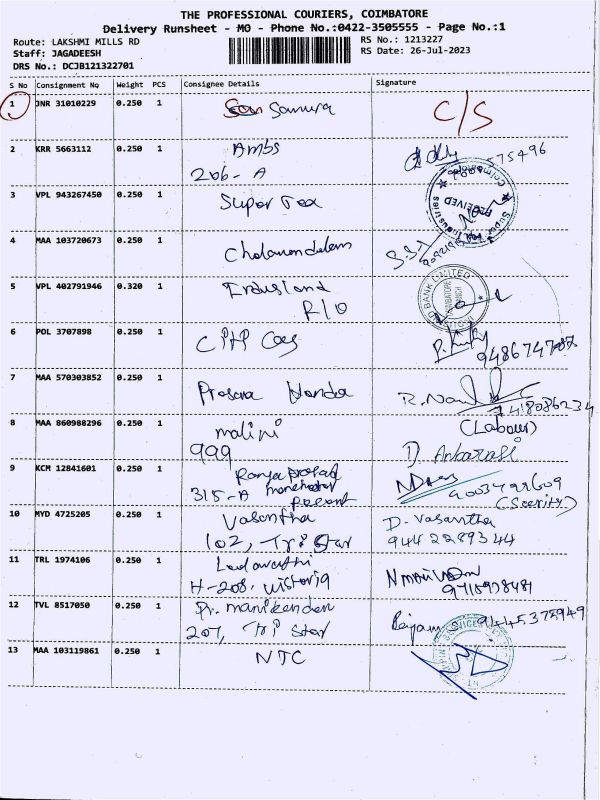 THE PROFESSIONAL COURIERS, COIMBATORE
Delivery Runsheet - MO - Phone No.:0422-3505555 - Page No.:1
Route: LAKSHMI MILLS RD
RS No.: 1213227
Staff: JAGADEESH
RS Date: 26-Jul-2023
DRS No.: DCJB121322701
S No Consignment No Weight PCS Consignee Details Signature
1 JNR 31010229 0.250 1 Samura C/S
2 KRR 5663112 0.250 1 Ambs
206-A 575496
3 VPL 943267450 0.250 1 Super Tex
RECEIVED
4 MAA 103720673 0.250 1 Cholamandalam
5 VPL 402791946 0.320 1 Indusland
R/O
BANK LIMITED
COIMBATORE
BRANCH
6 POL 3707898 0.250 1 CPHP
7 MAA 570303852 0.250 1 Prasana Honda R. Nand
7418086234
8 MAA 860988296 0.250 1 malini (Labour)
999 D. Anbarasi
9 KCM 12841601 0.250 1 Ramya prasad
315-A manchester 9003499609
(Scerity)
10 MYD 4725205 0.250 1 Vasantha D. Vasantha
102, Tri Star 9442289344
11 TRL 1974106 0.250 1
H-208, Victoria
12 TVL 8517050 0.250 1 Dr. manikanden 9445375949
207, Tri Star
13 MAA 103119861 0.250 1 NTC